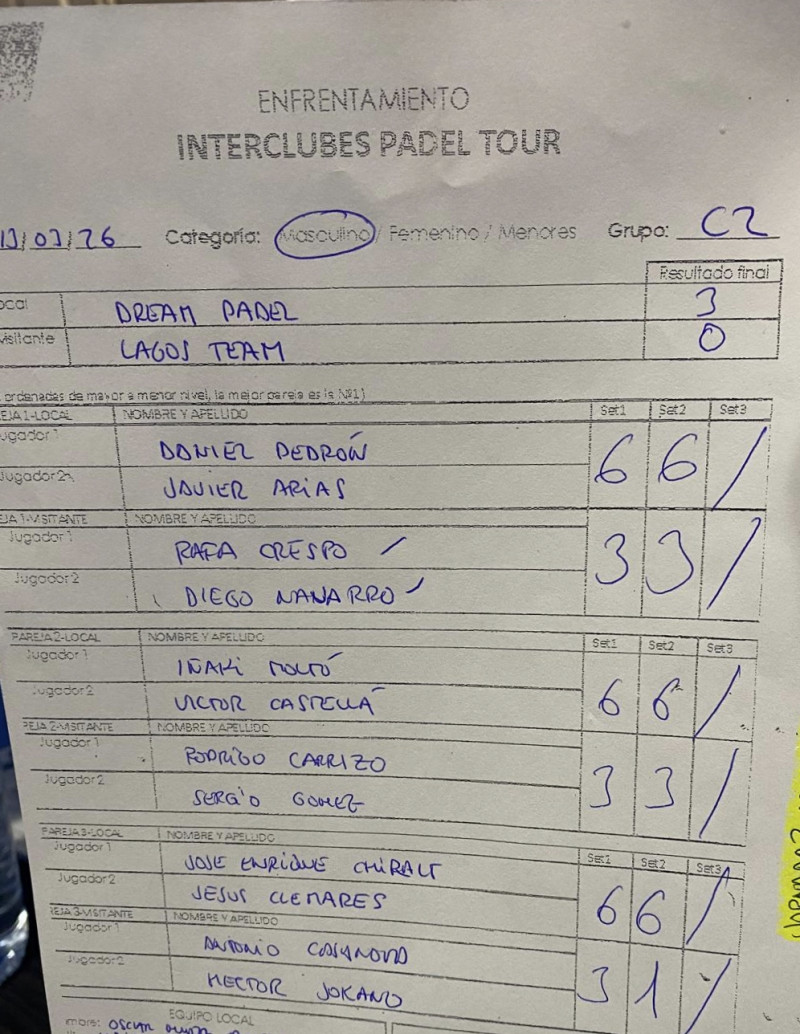 ENFRENTAMIENTO
INTERCLUBES PADEL TOUR
13/03/26 Categoría: Masculino / Femenino / Menores Grupo: C2
Resultado final
ocal DREAM PADEL 3
visitante LAGOS TEAM 0
ordenadas de mayor a menor nivel, la mejor pareja es la Nº1)
EJA 1-LOCAL NOMBRE Y APELLIDO Set1 Set2 Set3
Jugador 1 DANIEL PEDRÓN 6 6 /
Jugador 2 JAVIER ARIAS
EJA 1-VISITANTE NOMBRE Y APELLIDO
Jugador 1 RAFA CRESPO 3 3 /
Jugador 2 DIEGO NAVARRO
PAREJA 2-LOCAL NOMBRE Y APELLIDO Set1 Set2 Set3
Jugador 1 IÑAKI MOLTÓ 6 6 /
Jugador 2 VICTOR CASTELLÁ
REJA 2-VISITANTE NOMBRE Y APELLIDO
Jugador 1 RODRIGO CARRIZO 3 3 /
Jugador 2 SERGIO GOMEZ
PAREJA 3-LOCAL NOMBRE Y APELLIDO Set1 Set2 Set3
Jugador 1 JOSE ENRIQUE CHIRALT 6 6 /
Jugador 2 JESUS CLEMARES
REJA 3-VISITANTE NOMBRE Y APELLIDO
Jugador 1 ANTONIO CASANOVA 3 1 /
Jugador 2 HECTOR
EQUIPO LOCAL
mbre: OSCAR